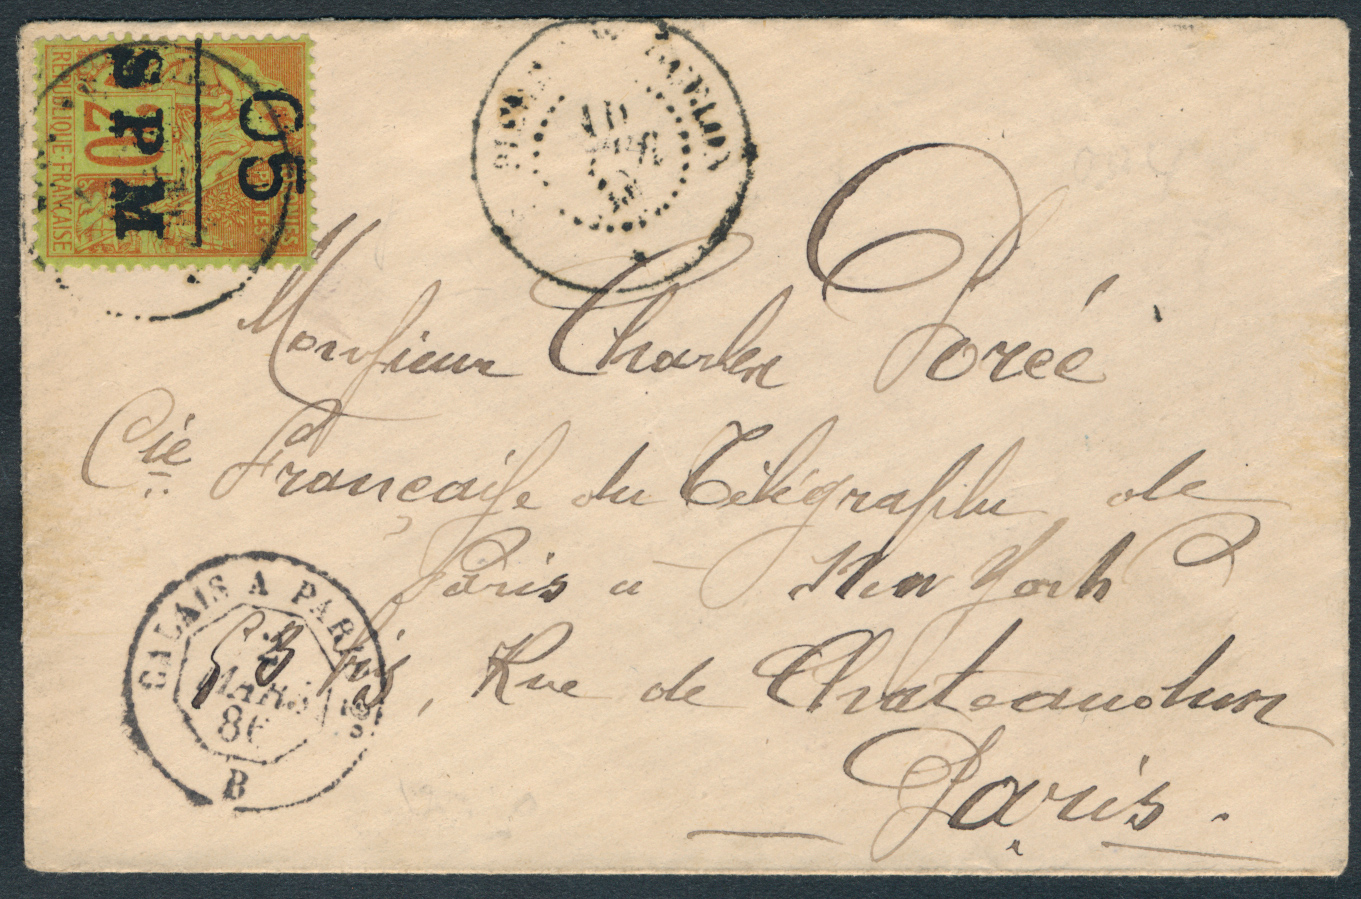 05
S P M
20
RÉPUBLIQUE FRANÇAISE
ST PIERRE MIQUELON
Monsieur Charles Porée
Cie Française du Télégraphe de
Paris à New York
53 bis, Rue de Chateaudun
Paris.
CALAIS A PARIS
MARS
86
B